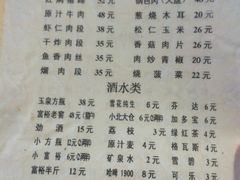 原汁牛肉 48元 葱烧木耳 20元
虾仁肉段 38元 松仁玉米 26元
干炸肉段 35元 香菇肉片 26元
鱼香肉丝 35元 肉炒青椒 20元
熘肉段 35元 烧菠菜 22元
酒水类
玉泉方瓶 38元 雪花纯生 6元 芬达 6元
富裕老窖 48元 小北大仓 6元 加多宝 6元
劲酒 15元 荔枝 3元 绿红茶 4元
小方瓶 12元 原汁麦 4元 格瓦斯 4元
小富裕 6元 矿泉水 2元 雪碧 3元
富裕半斤 12元 哈啤1900 8元 可乐 3元